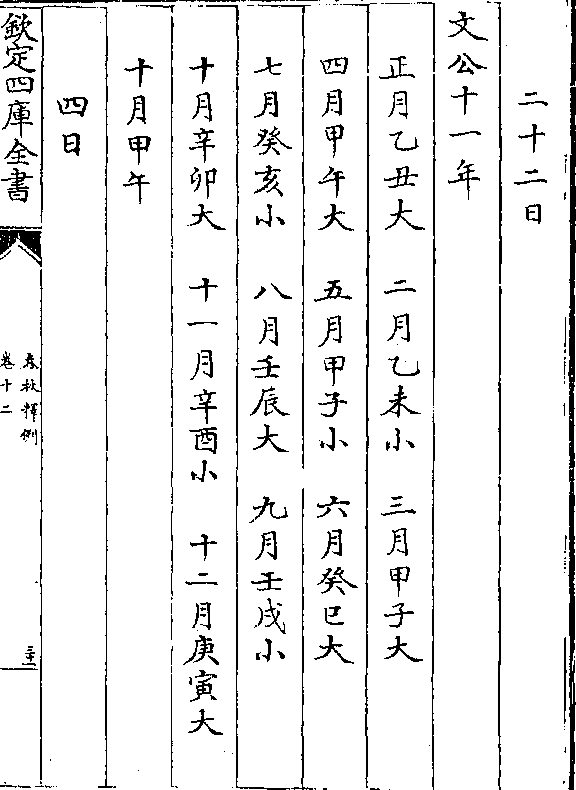 二十二日
文公十一年
正月乙丑大 二月乙未小 三月甲子大
四月甲午大 五月甲子小 六月癸巳大
七月癸亥小 八月壬辰大 九月壬戌小
十月辛卯大 十一月辛酉小 十二月庚寅大
十月甲午
四日
欽定四庫全書
春秋釋例
卷十二